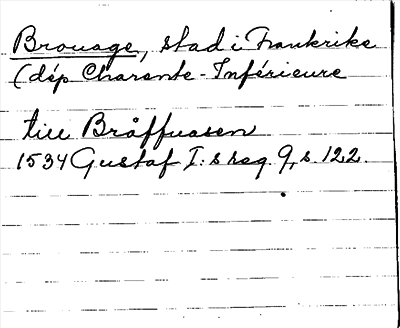 Brouage, stad i Frankrike
(dép Charente-Inférieure
till Bråffuasen
1534 Gustaf I:s reg. 9, s. 122.